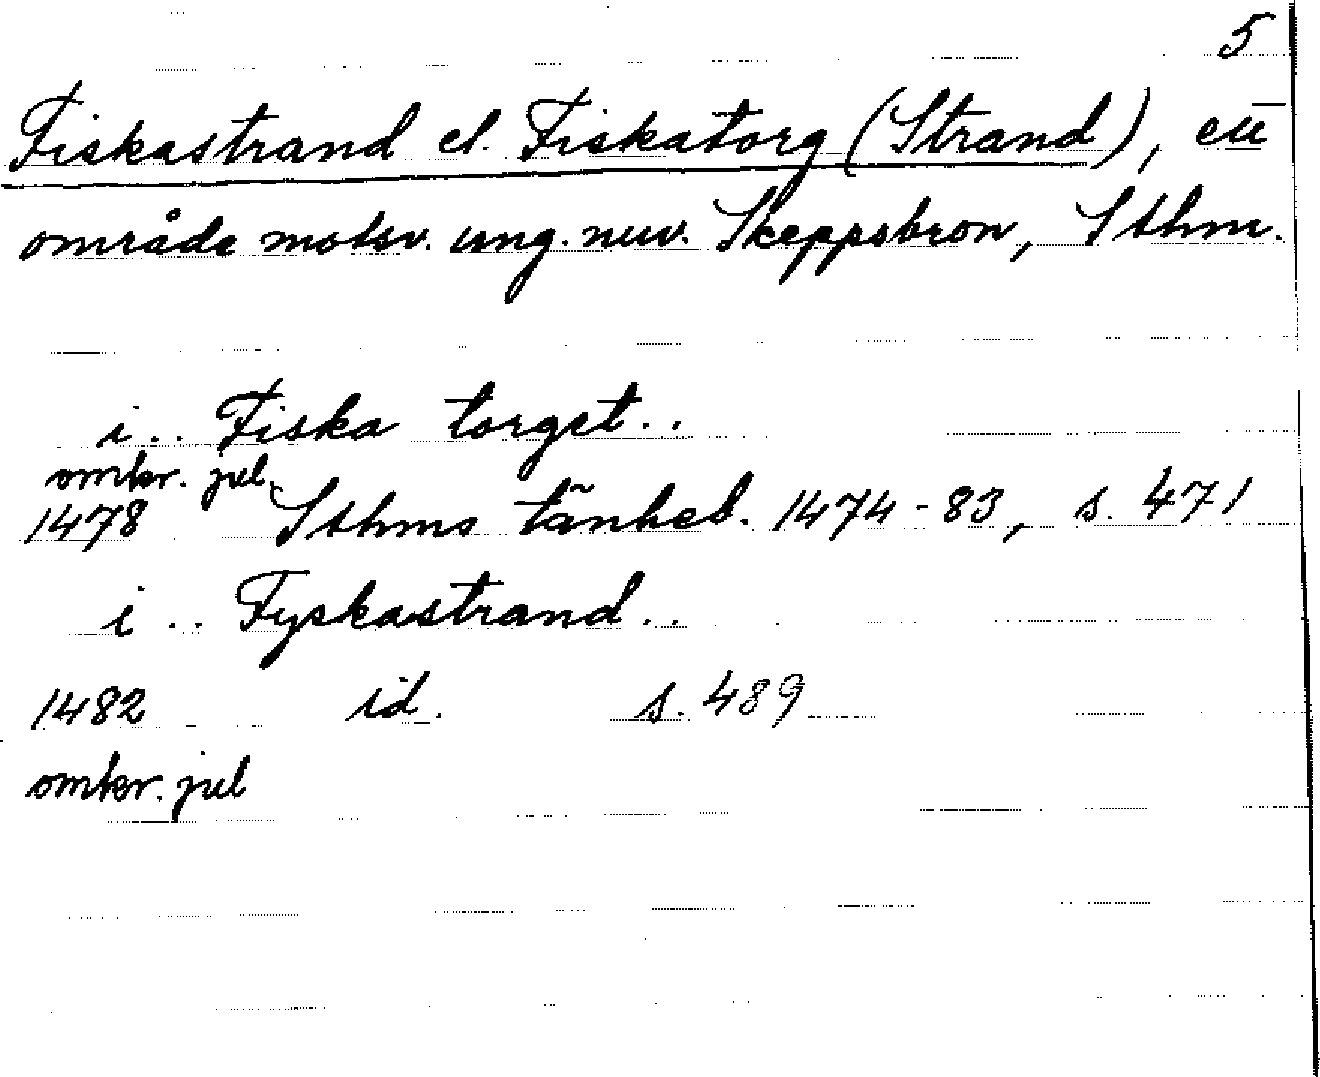 5
Fiskastrand el. Fiskatorg (Strand), ett
område motsv. ung. nuv. Skeppsbron, Sthm.
i .. Fiska torget ..
omkr. jul
1478 Sthms tänkeb. 1474-83, s. 471
i .. Fyskastrand ..
1482 id. s. 489
omkr. jul